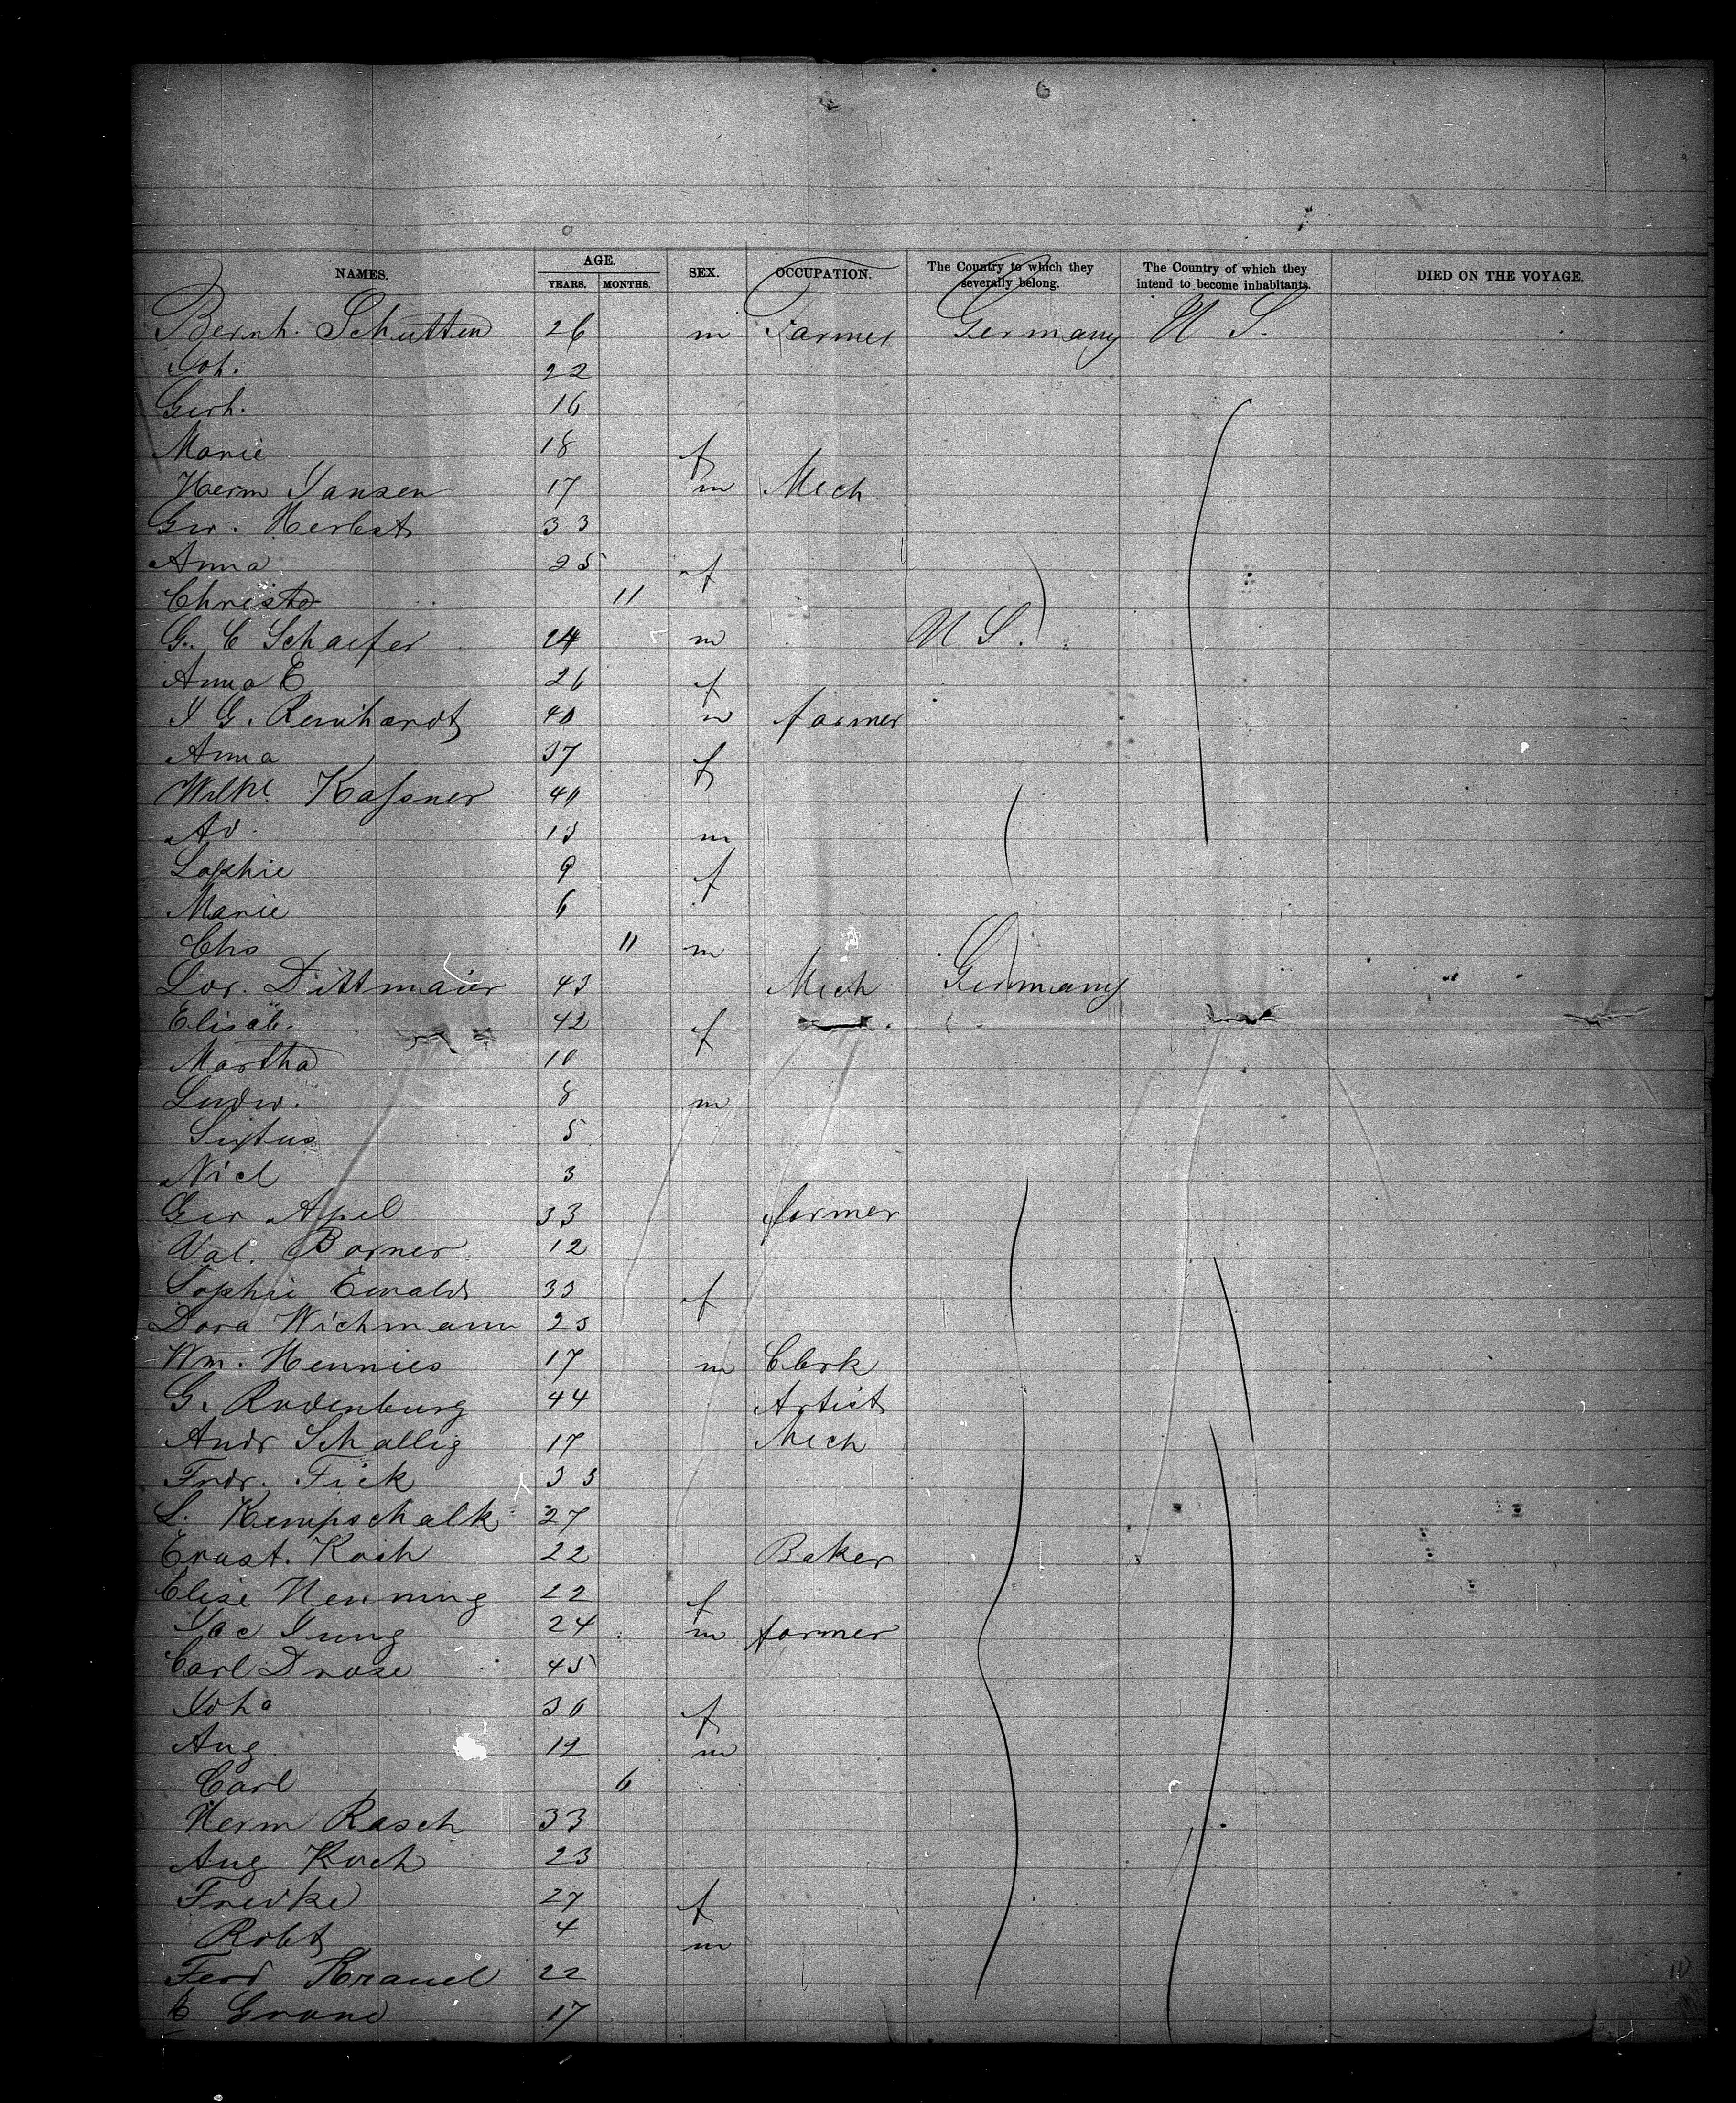 NAMES. AGE. YEARS. MONTHS. SEX. OCCUPATION. The Country to which they severally belong. The Country of which they intend to become inhabitants. DIED ON THE VOYAGE.
Bernh. Schutten 26 m Farmer Germany U S.
Joh. 22
Gerh. 16
Marie 18 f
Herm Jansen 17 m Mech
Geo. Herbst 33
Anna 25 f
Christ 11
G. C Schaefer 24 m U S.
Anna E 26 f
J G. Reinhardt 40 m farmer
Anna 37 f
Wilhl Kassner 40
Ad. 13 m
Sophie 9 f
Marie 6
Chs 11 m
Lor. Dittmaier 43 Mech Germany
Elisab. 42 f
Martha 10
Ludw. 8 m
Sixtus 5
Nicl 3
Geo Apel 33 farmer
Val. Borner 12
Sophie Ewald 33 f
Dora Wichmann 23
Wm. Hennies 17 m Clerk
G. Rodenburg 44 Artist
Andr Schallig 17 Mech
Fridr. Fick 33
L. Kempschalk 27
Ernst. Koch 22 Baker
Elise Henning 22 f
Jac Jung 24 m farmer
Carl Drose 45
Joha 30 f
Aug 12 m
Carl 6
Herm Rasch 33
Aug Koch 23
Friedke 27 f
Robt 4 m
Ferd Kranel 22
C Grand 17